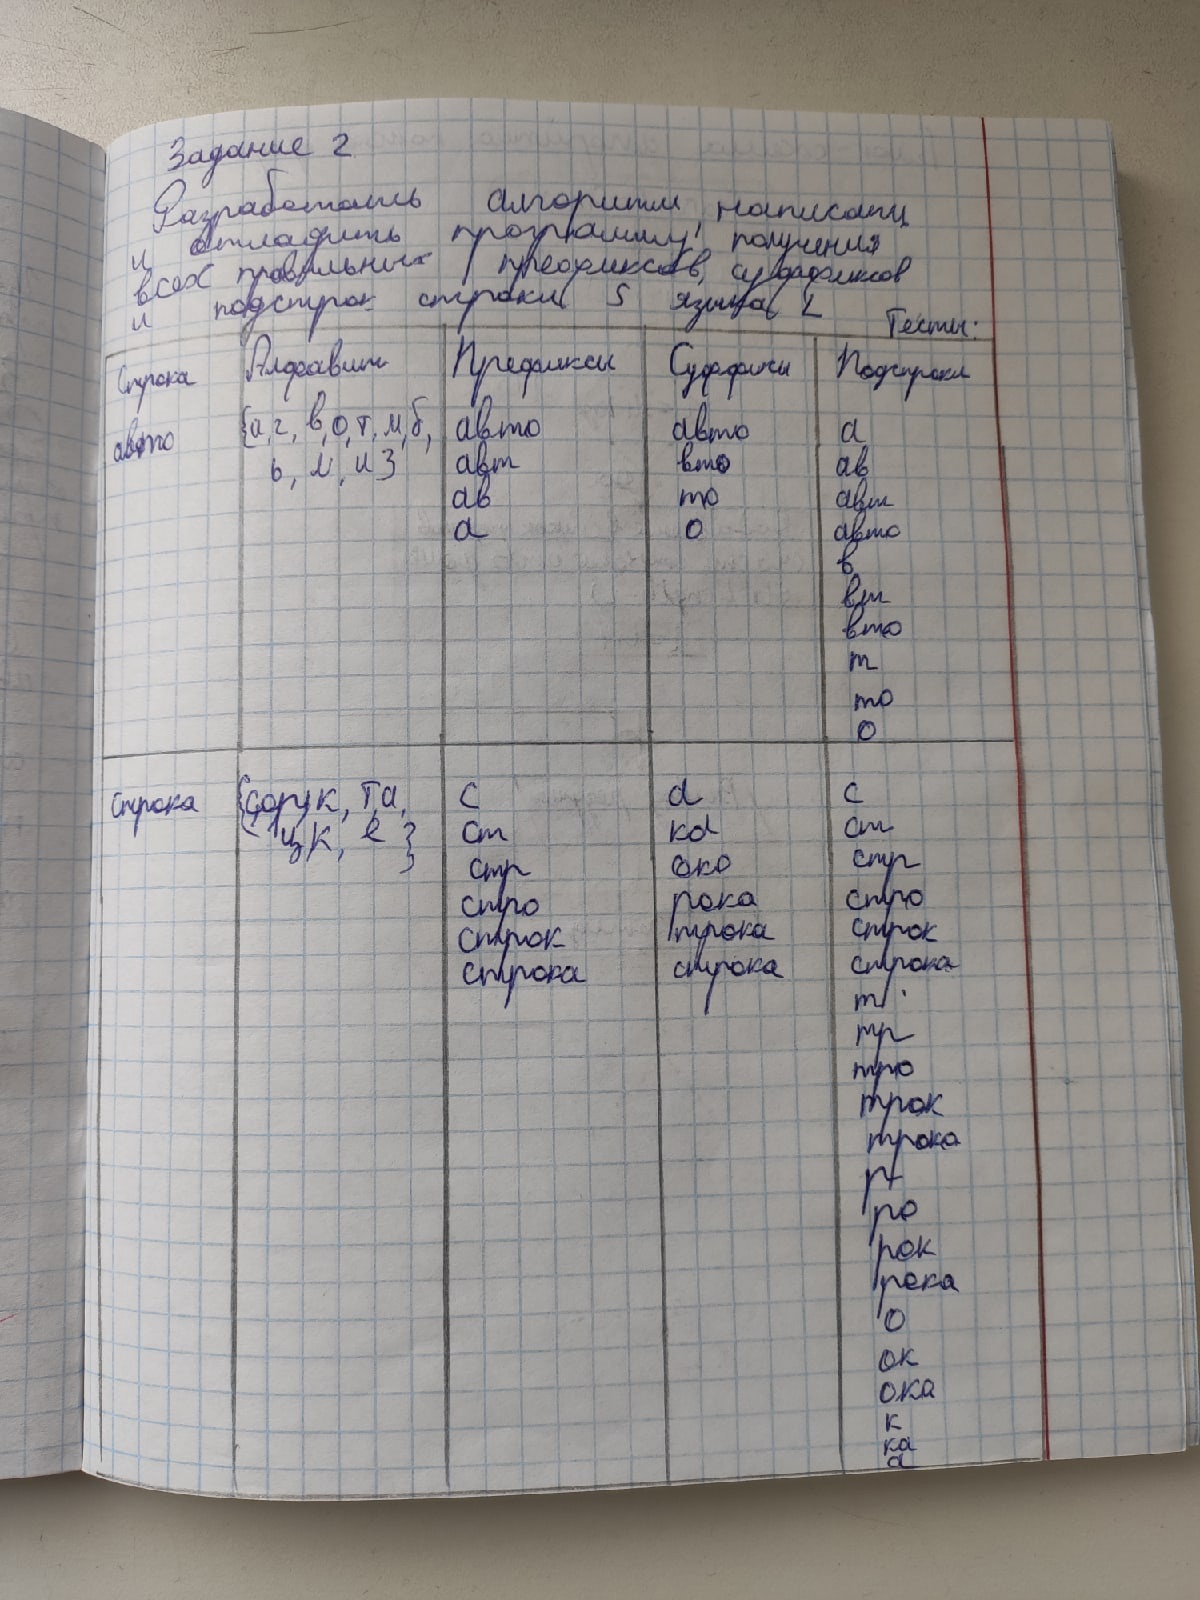 Задание 2
Разработать алгоритм, написать
и отладить программу получения
всех правильных префиксов, суффиксов
и подстрок строки S языка L
Тесты:
Строка Алфавит Префиксы Суффиксы Подстроки
авто {а, г, в, о, т, м, б, авто авто а
ь, л, и} авт вто ав
ав то авт
а о авто
в
вт
вто
т
то
о
строка с а с
ст ка ст
стр око стр
стро рока стро
строк трока строк
строка строка строка
т
тр
тро
трок
трока
р
ро
рок
рока
о
ок
ока
к
ка
а